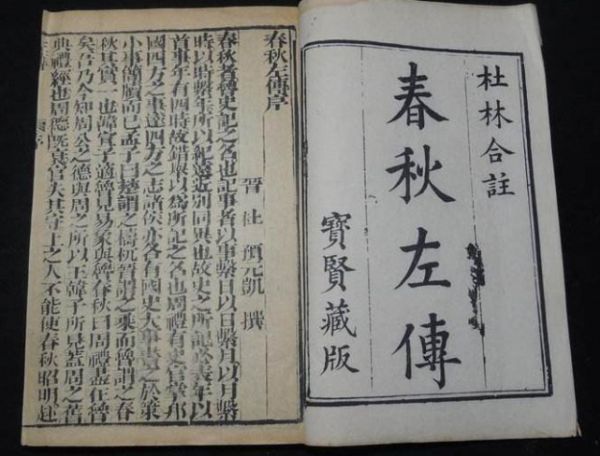 杜林合註
春秋左傳
寶賢藏版
春秋左傳序
晉 杜 預元凱 撰
春秋者魯史記之名也記事者以事繫日以日繫月以月繫
時以時繫年所以紀遠近別同異也故史之所記必表年以
首事年有四時故錯舉以爲所記之名也周禮有史官掌邦
國四方之事達四方之志諸侯亦各有國史大事書之於策
小事簡牘而已孟子曰楚謂之檮杌晉謂之乘而魯謂之春
秋其實一也韓宣子適魯見易象與魯春秋曰周禮盡在魯
矣吾乃今知周公之德與周之所以王韓子所見蓋周之舊
典禮經也周德旣衰官失其守上之人不能使春秋昭明赴